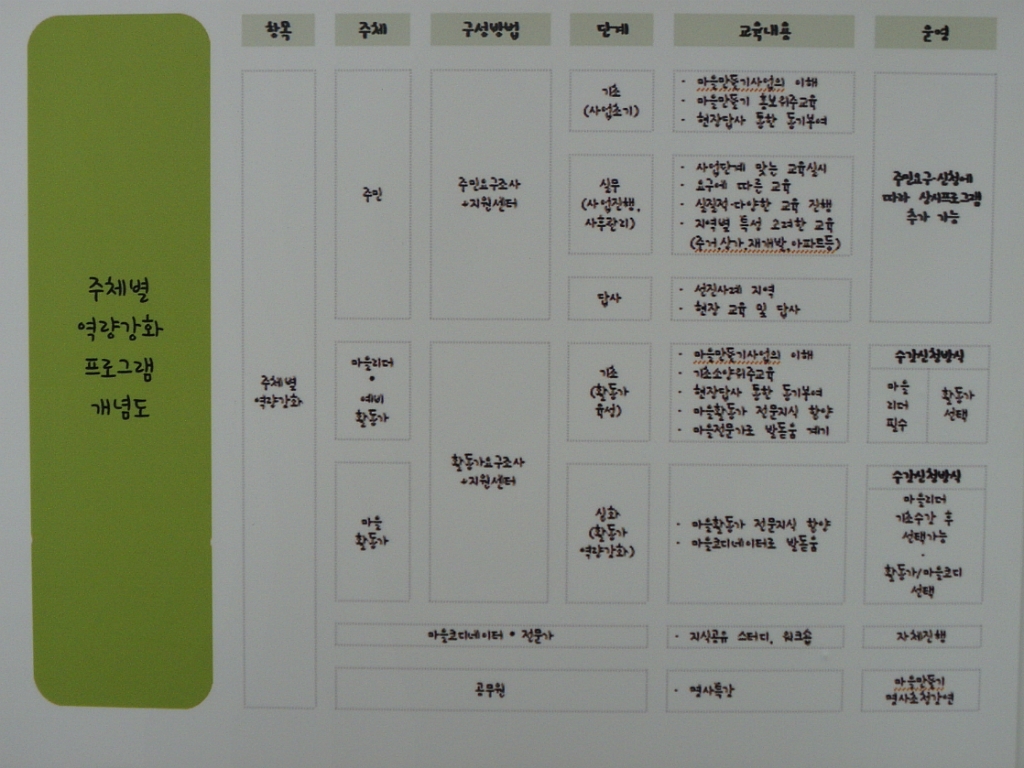 주체별
역량강화
프로그램
개념도
항목
주체
구성방법
단계
교육내용
운영
주체별
역량강화
주민
주민요구조사
+지원센터
기초
(사업초기)
- 마을만들기사업의 이해
- 마을만들기 홍보위주교육
- 현장답사 통한 동기부여
실무
(사업진행,
사후관리)
- 사업단계 맞는 교육실시
- 요구에 따른 교육
- 실질적·다양한 교육 진행
- 지역별 특성 고려한 교육
(주거,상가,재개발,아파트등)
답사
- 선진사례 지역
- 현장 교육 및 답사
주민요구·신청에
따라 상시프로그램
추가 가능
마을리더
•
예비
활동가
활동가요구조사
+지원센터
기초
(활동가
육성)
- 마을만들기사업의 이해
- 기초소양위주교육
- 현장답사 통한 동기부여
- 마을활동가 전문지식 함양
- 마을전문가로 발돋움 계기
수강신청방식
마을
리더
필수
활동가
선택
마을
활동가
심화
(활동가
역량강화)
- 마을활동가 전문지식 함양
- 마을코디네이터로 발돋움
수강신청방식
마을리더
기초수강 후
선택가능
-
활동가/마을코디
선택
마을코디네이터 • 전문가
- 지식공유 스터디, 워크숍
자체진행
공무원
- 명사특강
마을만들기
명사초청강연